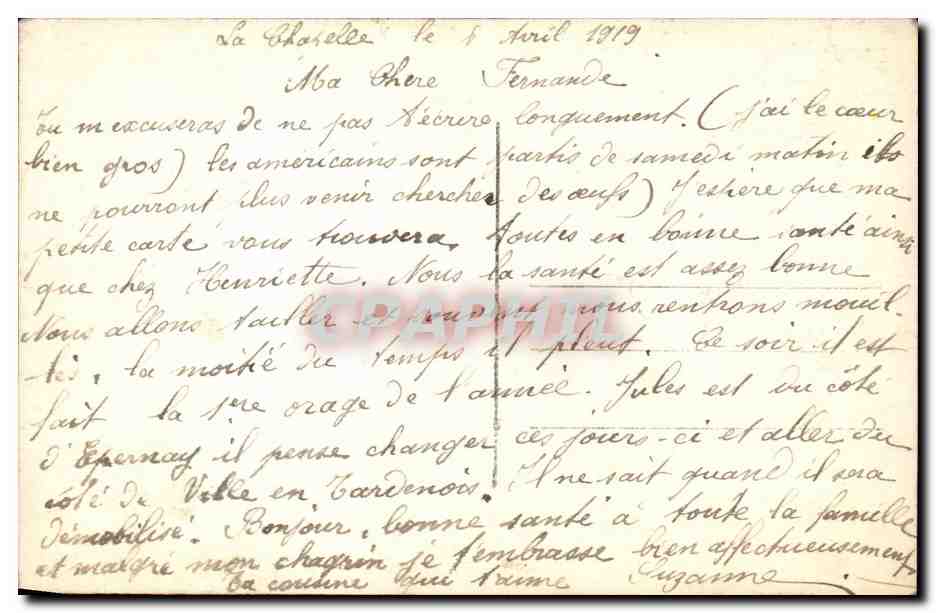 La Chapelle le 8 Avril 1919
Ma Chere Fernande
Tu m'excuseras de ne pas t'écrire longuement. (j'ai le cœur
bien gros) les américains sont partis de samedi matin ils
ne pourront plus venir chercher des œufs) J'espère que ma
petite carte vous trouvera toutes en bonne santé ainsi
que chez Henriette. Nous la santé est assez bonne
Nous allons tailler et souvent nous rentrons mouil-
lés. la moitié du temps il pleut. Ce soir il est
fait la 1ere orage de l'année. Jules est du côté
d'Epernay il pense changer ces jours-ci et aller du
côté de Ville en Tardenois. Il ne sait quand il sera
démobilisé. Bonjour, bonne santé à toute la famille
et malgré mon chagrin je t'embrasse bien affectueusement
ta cousine qui t'aime Suzanne
CPAPHIL